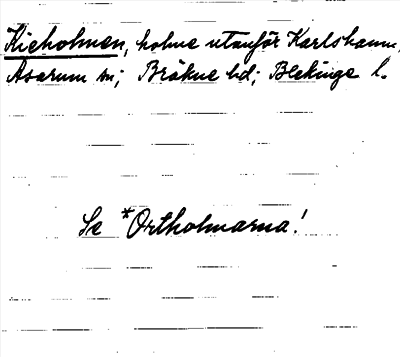 Kieholmen, holme utanför Karlshamn,
Asarum sn; Bräkne hd; Blekinge l.
Se *Ortholmarna!